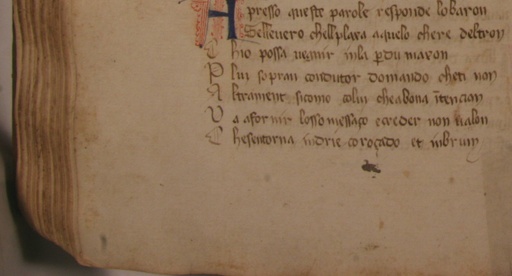 Apresso queste parole responde lobaron
Sellevero chellplaxa aquelo chere deltron
Chio possa vegnir inla pdu maxon
Plui sopran condutor domando cheti non
Altrament sicomo colui cheabona intencion
Va afornir losso messaço ecreder non valon
Chesentorna indrie coroçado et inbrun